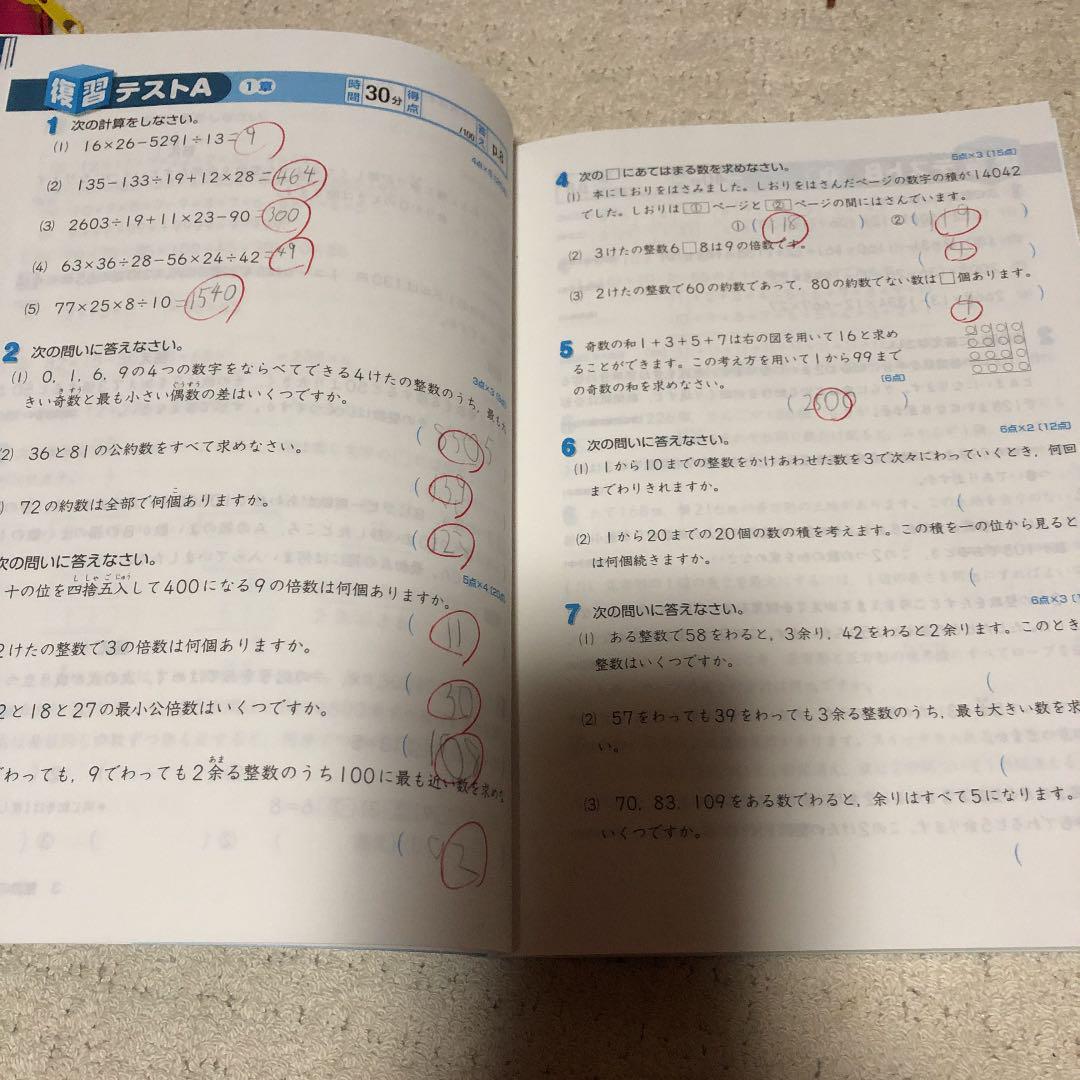 復習テストA 1章 時間 30分 得点 /100 答え p.8
1 次の計算をしなさい。
(1) 16×26−5291÷13=9
(2) 135−133÷19+12×28=464
(3) 2603÷19+11×23−90=300
(4) 63×36÷28−56×24÷42=49
(5) 77×25×8÷10=1540
2 次の問いに答えなさい。
(1) 0, 1, 6, 9の4つの数字をならべてできる4けたの整数のうち, 最も大
きい奇数と最も小さい偶数の差はいくつですか。
2) 36と81の公約数をすべて求めなさい。
) 72の約数は全部で何個ありますか。
次の問いに答えなさい。
5点×4(20点
十の位を四捨五入して400になる9の倍数は何個ありますか。
11
2けたの整数で3の倍数は何個ありますか。
30
2と18と27の最小公倍数はいくつですか。
でわっても, 9でわっても2余る整数のうち100に最も近い数を求めな
4 次の□にあてはまる数を求めなさい。
5点×3(15点)
(1) 本にしおりをはさみました。しおりをはさんだページの数字の積が14042
でした。しおりは①ページと②ページの間にはさんでいます。
①(118) ②(119)
(2) 3けたの整数6□8は9の倍数です。
(4)
(3) 2けたの整数で60の約数であって, 80の約数でない数は□個あります。
(4)
5 奇数の和1+3+5+7は右の図を用いて16と求め
ることができます。この考え方を用いて1から99まで
の奇数の和を求めなさい。
(6点)
(2500)
6 次の問いに答えなさい。
6点×2(12点)
(1) 1から10までの整数をかけあわせた数を3で次々にわっていくとき, 何回
までわりきれますか。
(
(2) 1から20までの20個の数の積を考えます。この積を一の位から見ると
は何個続きますか。
(
7 次の問いに答えなさい。
6点×3(1
(1) ある整数で58をわると, 3余り, 42をわると2余ります。このとき
整数はいくつですか。
(
(2) 57をわっても39をわっても3余る整数のうち, 最も大きい数を求
い。
(
(3) 70, 83, 109をある数でわると, 余りはすべて5になります。
いくつですか。
(